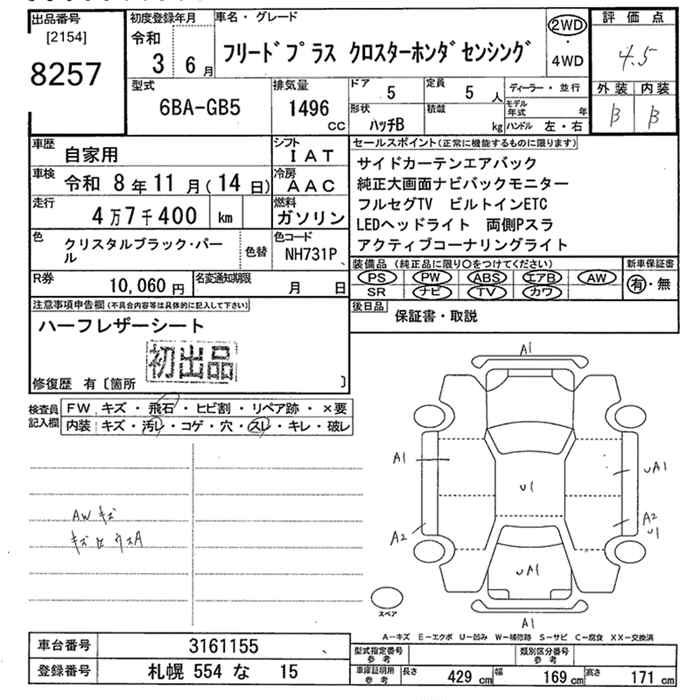 出品番号 初度登録年月 車名・グレード 2WD 評価点
[2154] 令和 フリードプラス クロスターホンダセンシング ・ 4.5
8257 3 6月 4WD
型式 排気量 ドア 定員 ディーラー・並行 外装 内装
6BA-GB5 1496 CC 5 5人 モデル年式 年 B B
形状 積載
ハッチB kg ハンドル 左・右
車歴 自家用 シフト IAT セールスポイント(正常に機能するものに限ります)
車検 令和 8年11月(14日) 冷房 AAC サイドカーテンエアバック
純正大画面ナビバックモニター
走行 4万7千400 km 燃料 ガソリン フルセグTV ビルトインETC
LEDヘッドライト 両側Pスラ
色 クリスタルブラック・パール 色替 色コード NH731P アクティブコーナリングライト
装備品(純正品に限り○をつけてください) 新車保証書
R券 10,060円 名変通知期限 月 日 PS PW ABS エアB AW 有・無
SR ナビ TV カワ
注意事項申告欄(不具合内容等は具体的に記入して下さい) 後日品 保証書・取説
ハーフレザーシート
初出品
修復歴 有〔箇所 〕
検査員記入欄 FW キズ・飛石・ヒビ割・リペア跡・×要
内装 キズ・汚レ・コゲ・穴・スレ・キレ・破レ
A1
A1 UA1
U1
AWキズ
A2 A2
U1
UA1
スペア
A1
A-キズ E-エクボ U-凹み W-補修跡 S-サビ C-腐食 XX-交換済
車台番号 3161155 型式指定番号 参考 類別区分番号 参考
登録番号 札幌 554 な 15 車庫証明用 参考 長さ 429 cm 幅 169 cm 高さ 171 cm